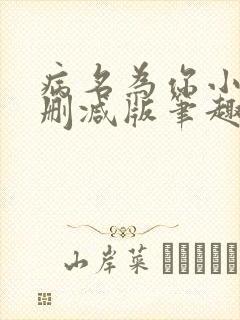 病名为你小
删减版笔趣
山岸菜